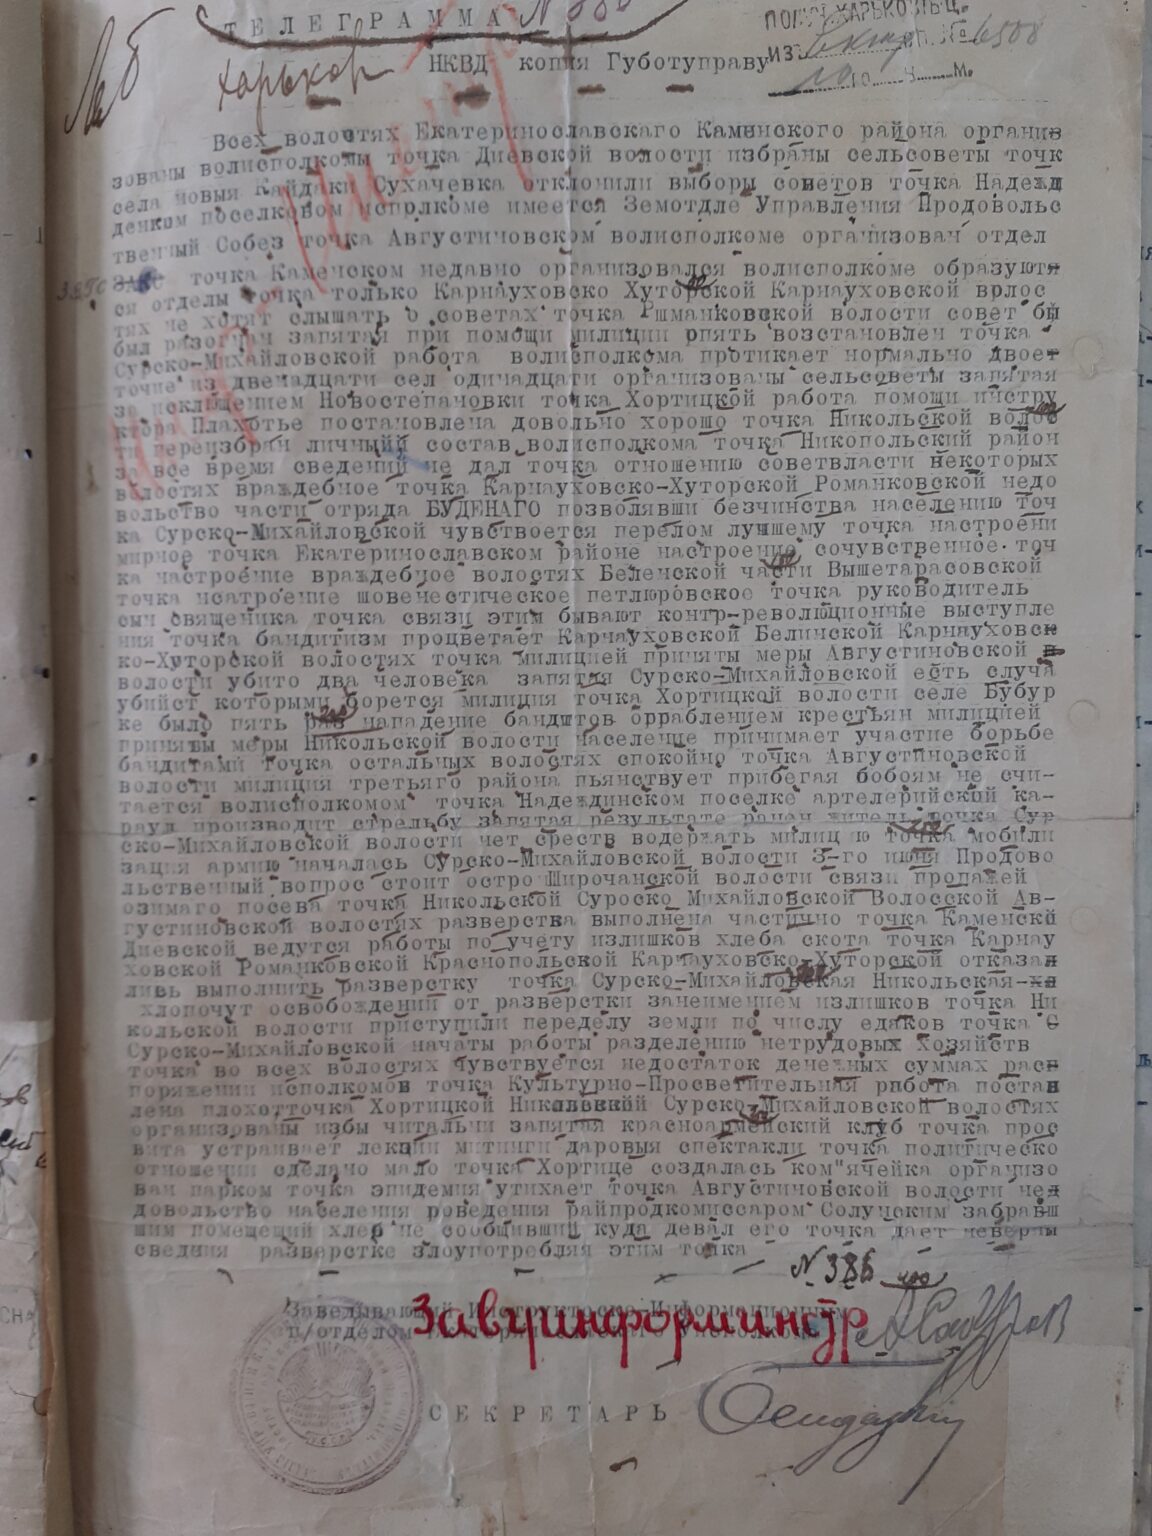 ТЕЛЕГРАММА N 386
Харьков НКВД копия Губотуправу
Всех волостях Екатеринославскаго Каменского района органив
зованы волисполкомы точка Диевской волости избраны сельсоветы точк
села новыя Кайдаки Сухачевка отклонили выборы советов точка Надежд
денком поселковом исполкоме имеется Земотдле Управления Продовольс
твенный Собез точка Августиновском волисполкоме организован отдел
ЗАГС точка Каменском недавно организовался волисполкоме образуютя
ся отделы точка только Карнауховско Хуторской Карнауховской врлос
тях не хотят слышать о советах точка Ршманковской волости совет бы
был разогнан запятая при помощи милиции рпять возстановлен точка
Сурско-Михайловской работа волисполкома протикает нормально двоет
точие из двенадцати сел одинадцати организованы сельсоветы запятая
за исклщением Новостепановки точка Хортицкой работа помощи инстру
ктора Плахотье постановлена довольно хорошо точка Никольской волос
ти переизбран личныйй состав волисполкома точка Никопольский район
за все время сведений не дал точка отношению советвласти некоторых
волостях враждебное точка Карнауховско-Хуторской Романковской недо
вольство части отряда БУДЕНАГО позволявши безчинства населению точ
ка Сурско-Михайловской чувствоется перелом лучшему точка настроени
мирное точка Екатеринославском районе настроение сочувственное точ
ка настроение враждебное волостях Беленской части Вышетарасовской
точка нсатроение шовенестическое петлюровское точка руководитель
сын священика точка связи этим бывают контр-революционные выступле
ния точка бандитизм процветает Карнауховской Белинской Карнауховск
ко-Хуторской волостях точка милицией приняты меры Августиновской в
волости убито два человека запятая Сурско-Михайловской есть случа
убийст которыми борется милиция точка Хортицкой волости селе Бубур
ке было пять раз нападение бандитов орраблением крестьян милицией
приняты меры Никольской волости население принимает участие борьбе
бандитами точка остальных волостях спокойно точка Августиновской
волости милиция третьяго района пьянствует прибегая бобоям не счи-
тается волисполкомом точка Надеждинском поселке артелерийский ка-
раул производит стрельбу запятая результате ранен житель точка Сур
ско-Михайловской волости нет среств водержать милицию точка мобили
зация армию началась Сурско-Михайловской волости 3-го июня Продово
льственный вопрос стоит остро Широчанской волости связи пропажей
озимаго посева точка Никольской Суроско Михайловской Волосской Ав-
густиновской волостях разверстка выполнена частично точка Каменскй
Диевской ведутся работы по учету излишков хлеба скота точка Карнау
ховской Романковской Краснопольской Карнауховско-Хуторской отказал
лись выполнить разверстку точка Сурско-Михайловская Никольская-хл
хлопочут освобождении от разверстки занеимением излишков точка Ни
кольской волости приступили переделу земли по числу едаков точка С
Сурско-Михайловской начаты работы разделению нетрудовых хозяйств
точка во всех волостях чувствуется недостаток денежных суммах расп
поряжении исполкомов точка Культурно-Просветительная работа постав
лена плохо точка Хортицкой Никольской Сурско-Михайловской волостях
организованы избы читальни запятая красноармейский клуб точка прос
вита устраивает лекции митинги даровыя спектакли точка политическо
отношении сделано мало точка Хортице создалась ком"ячейка организо
ван парком точка эпидемия утихает точка Августиновской волости нед
довольство населения роведения райпродкомиссаром Солунским забравш
шим помещений хлер не сообщивший куда девал его точка дает неверны
сведния разверстке злоупотребляя этим точка
N 386
Заведывающий Инструкторско-Информационным
п/отделом
Завуинформинстр
СЕКРЕТАРЬ